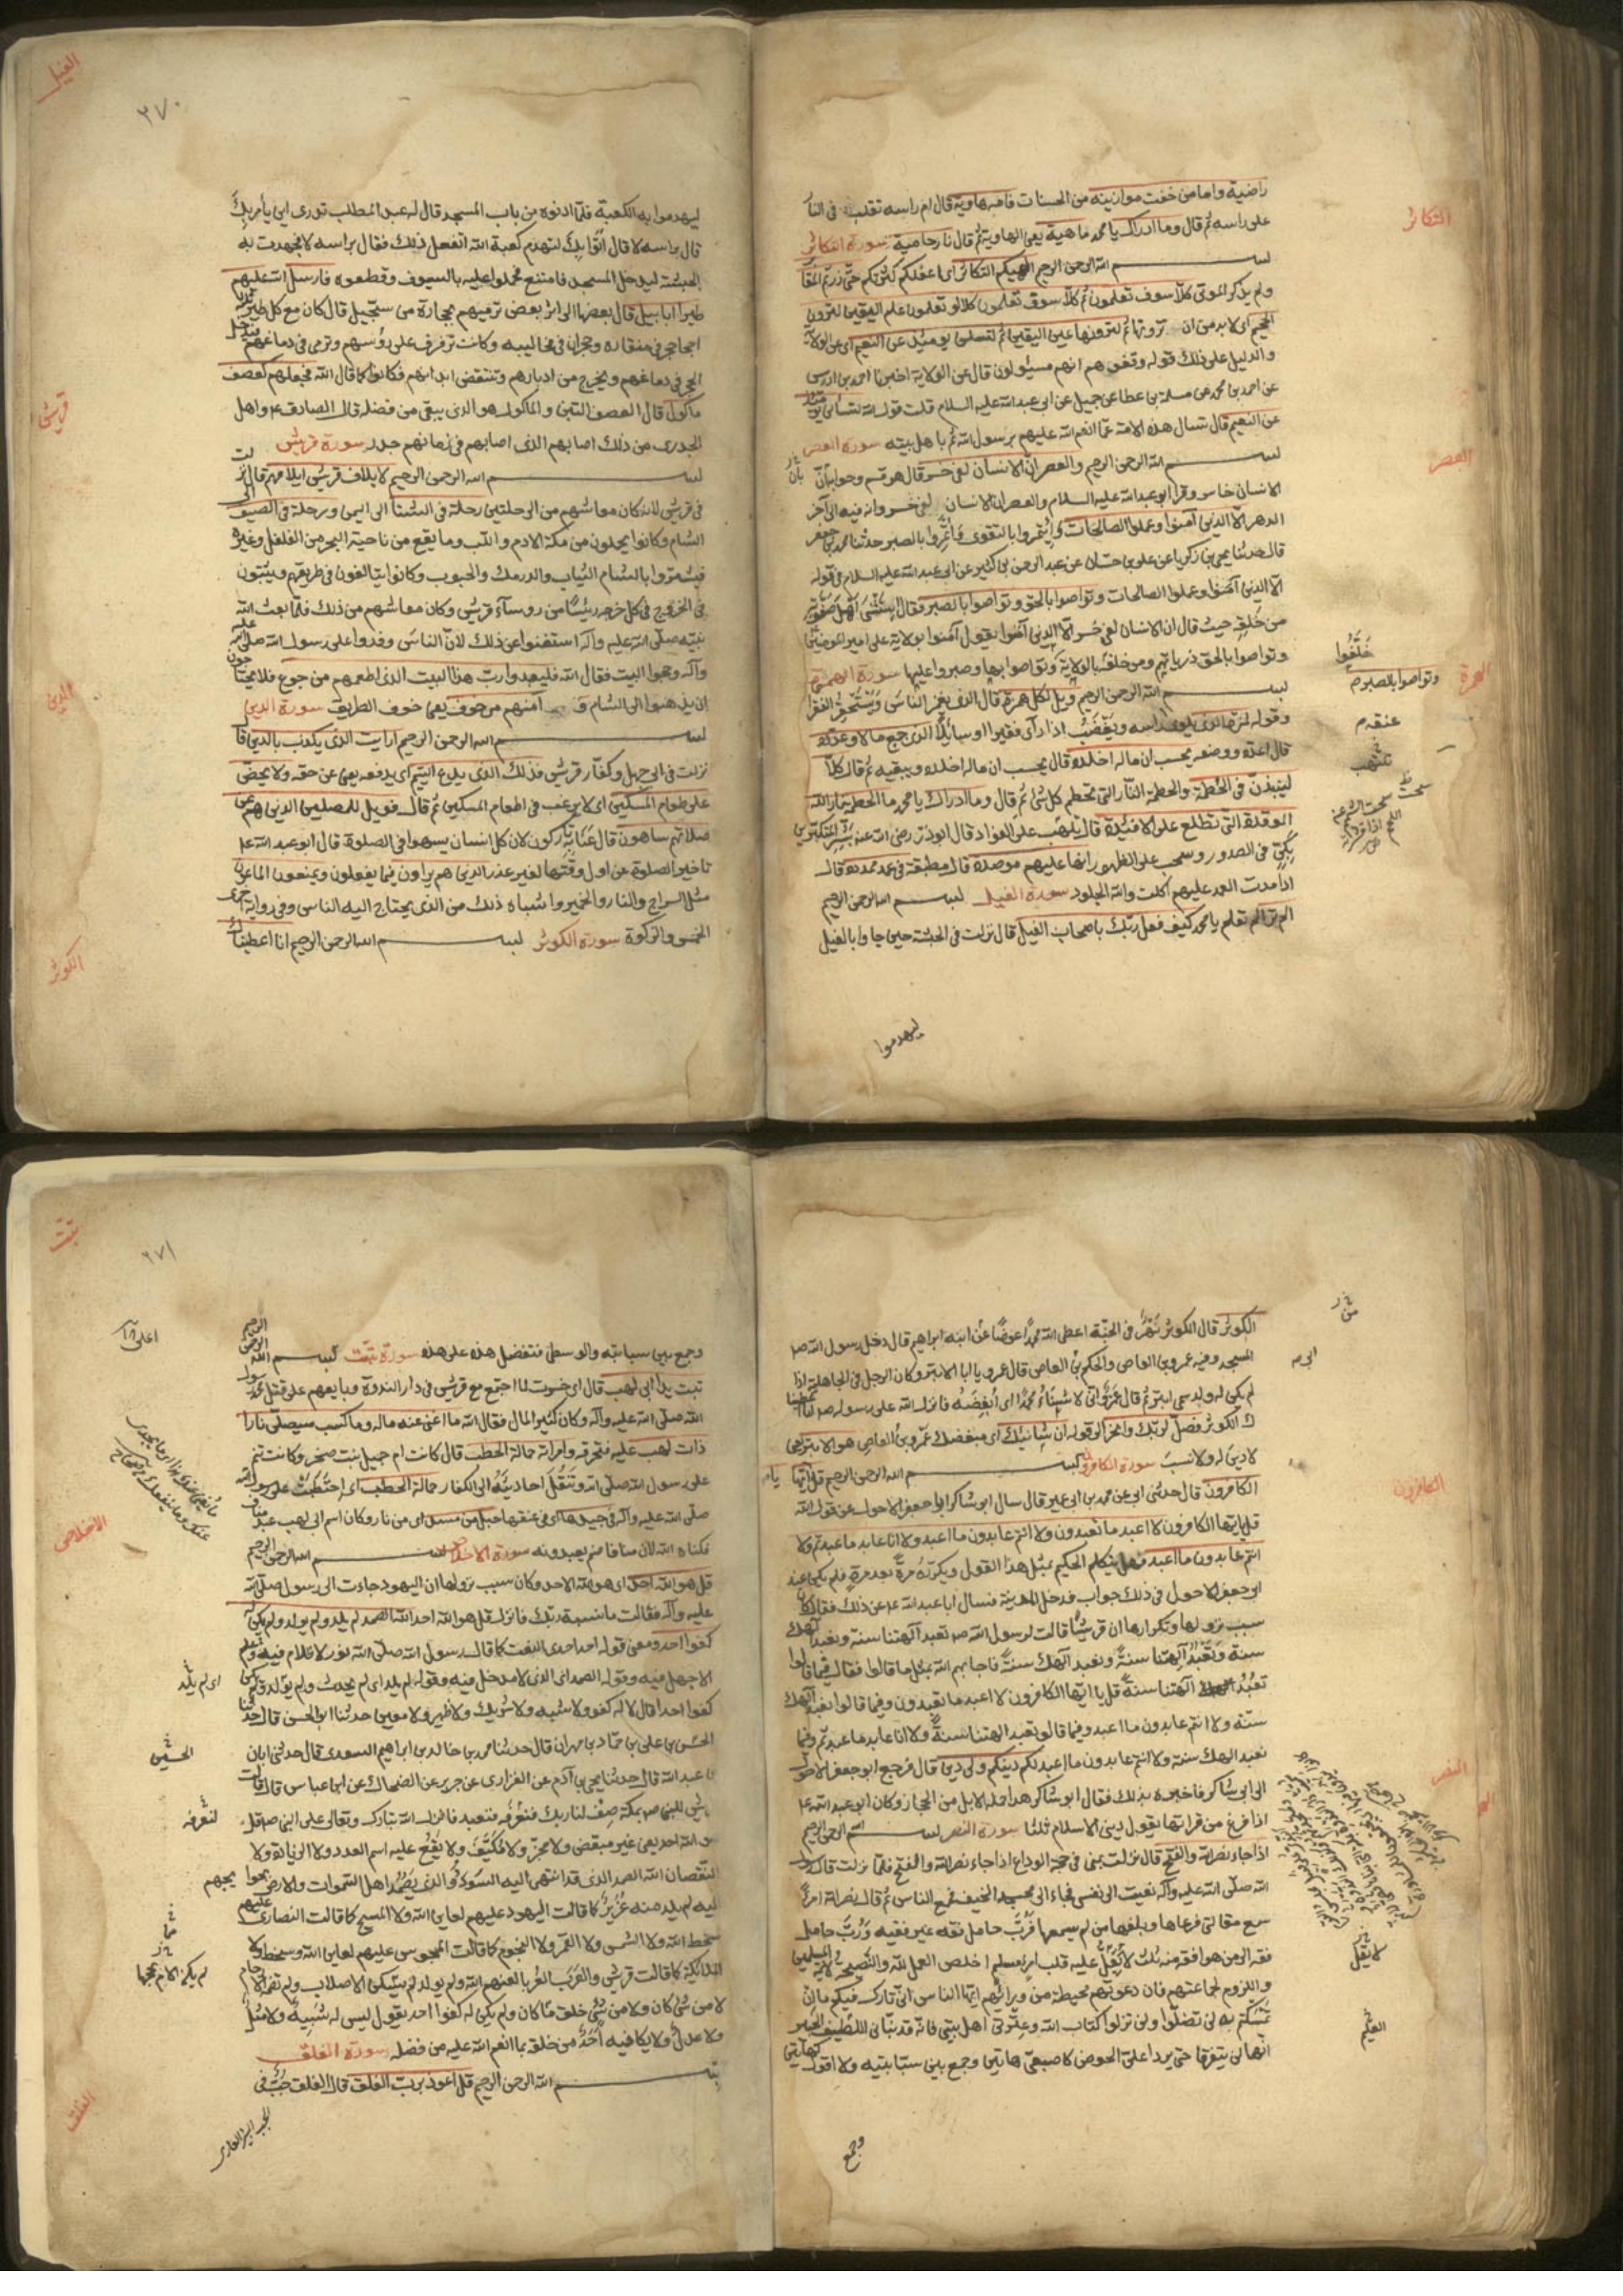 التكاثر
راضية واما من خفت موازينه من الحسنات فامه هاوية قال ام راسه تقلب في النار
على راسه ثم قال وما ادراك يا محمد ما هية يعني الهاوية ثم قال نار حامية سورة التكاثر
بسم الله الرحمن الرحيم الهيكم التكاثر اى اغفلكم كثرتكم حتى زرتم المقا
ولم يذكر الموتى كلا سوف تعلمون ثم كلا سوف تعلمون كلا لو تعلمون علم اليقين لترون
الجحيم اى لابد من ان ترونها ثم لترونها عين اليقين ثم لتسئلن يومئذ عن النعيم اى عن الولاية
والدليل على ذلك قوله وقفوهم انهم مسئولون قال عن الولاية اخبرنا احمد بن ادريس
عن احمد بن محمد عن مسلمة بن عطا عن جميل عن ابى عبد الله عليه السلام قلت قول الله لتسألن يومئذ
عن النعيم قال تسال هذه الامة عما انعم الله عليهم برسول الله ثم باهل بيته سورة العصر
العصر
بسم الله الرحمن الرحيم والعصر ان الانسان لفى خسر قال هو قسم وجوابه ان
الانسان خاسر وقرا ابو عبد الله عليه السلام والعصر ان الانسان لفى خسر وانه فيه الى آخر
الدهر الا الذين آمنوا وعملوا الصالحات وائتمروا بالتقوى وائتمروا بالصبر حدثنا محمد بن جعفر
قال حدثنا يحيى بن زكريا عن على بن حسان عن عبد الرحمن بن كثير عن ابى عبد الله عليه السلام فى قوله
الا الذين آمنوا وعملوا الصالحات وتواصوا بالحق وتواصوا بالصبر فقال استثنى اهل صفوته
من خلقه حيث قال ان الانسان لفى خسر الا الذين آمنوا يقول آمنوا بولاية على امير المومنين
وتواصوا بالحق ذرياتهم ومن خلقه بالولاية وتواصوا بها وصبروا عليها سورة الهمزة
خلّفوا
وتواصوا بالصبر م
الهمزة
بسم الله الرحمن الرحيم ويل لكل همزة قال الذى يغمز الناس ويستحقر الفقراء
وقوله لمزة الذى يلوى راسه ويغضب اذا رأى فقيرا او سائلا الذى جمع مالا وعدده
عنقه م
قال اعده ووضعه يحسب ان ماله اخلده قال يحسب ان ماله اخلده ويبقيه ثم قال كلا
لينبذن فى الحطمة والحطمة النار التى تحطم كل شئ ثم قال وما ادراك يا محمد ما الحطمة نار الله
الموقدة التى تطلع على الافئدة قال تلهب على الفؤاد قال ابوذر رضى الله عنه بشر المتكبرين
تلتهب
بكى فى الصدور وسحب على الظهور انها عليهم موصدة قال مطبقة فى عمد ممددة قال
اذا مدت العمد عليهم اكلت والله الجلود سورة الفيل بسم الله الرحمن الرحيم
الم تر الم تعلم يا محمد كيف فعل ربك باصحاب الفيل قال نزلت فى الحبشة حين جاوا بالفيل
ليهدموا
الفيل
٣٧٠
ليهدموا به الكعبة فلما ادنوه من باب المسجد قال له عبد المطلب تدرى اين يأم بك
قال براسه لا قال اتوا بك لتهدم كعبة الله اتفعل ذلك فقال براسه لا فجهدت به
الحبشة ليدخل المسجد فامتنع فحملوا عليه بالسيوف وقطعوه فارسل الله عليهم
طيرا ابابيل قال بعضها الى اثر بعض ترميهم بحجارة من سجيل قال كان مع كل طير
حجر فى منقاره وحجران فى مخاليبه وكانت ترفرف على رؤسهم وترمى فى دماغهم
الحجر فى دماغهم ويخرج من ادبارهم وتنتقض ابدانهم فكانوا كما قال الله فجعلهم كعصف
ماكول قال العصف التبن والماكول هو الذى يبقى من فضله قال الصادق ع واهل
الجدرى من ذلك اصابهم الذى اصابهم فى زمانهم جدر سورة قريش
قريش
بسم الله الرحمن الرحيم لايلاف قريش ايلافهم قال نزلت
فى قريش لانه كان معاشهم من الرحلتين رحلة فى الشتا الى اليمن ورحلة فى الصيف الى
الشام وكانوا يحملون من مكة الادم واللب وما يقع من ناحية البحر من الفلفل وغيره
فيشتروا بالشام الثياب والدرمك والحبوب وكانوا يتالفون فى طريقهم ويثبتون
فى الخروج فى كل خرجه رئيسا من روساء قريش وكان معاشهم من ذلك فلما بعث الله
نبيه صلى الله عليه وآله استغنوا عن ذلك لان الناس وفدوا على رسول الله صلى الله عليه
وآله وحجوا البيت فقال الله فليعبدوا رب هذا البيت الذى اطعمهم من جوع فلا يحتاجون
ان يذهبوا الى الشام و آمنهم من خوف يعنى خوف الطريق سورة الدين
الدين
بسم الله الرحمن الرحيم ارايت الذى يكذب بالدين قال
نزلت فى ابى جهل وكفار قريش فذلك الذى يدع اليتيم اى يدفعه يعنى عن حقه ولا يحض
على طعام المسكين اى لا يرغب فى اطعام المسكين ثم قال فويل للمصلين الذين هم عن
صلاتهم ساهون قال عنى به تاركون لان كل انسان يسهوا فى الصلوة قال ابو عبد الله ع
تاخير الصلوة عن اول وقتها لغير عذر الذين هم يراون فيما يفعلون ويمنعون الماعون
مثل السراج والنار والخمير واشباه ذلك من الذى يحتاج اليه الناس وفى رواية اخرى
الخمس والزكوة سورة الكوثر بسم الله الرحمن الرحيم انا اعطيناك
الكوثر
الكوثر قال الكوثر نهر فى الجنة اعطى الله محمدا عوضا عن ابنه ابراهيم قال دخل رسول الله ص
المسجد وفيه عمرو بن العاص والحكم بن العاص قال عمرو يا ابا الابتر وكان الرجل فى الجاهلية اذا
لم يكن له ولد سمى ابتر ثم قال عمرو انى لاشنأ محمدا اى ابغضه فانزل الله على رسوله ص انا اعطينا
ك الكوثر فصل لربك وانحر الى قوله ان شانئك اى مبغضك عمرو بن العاص هو الابتر يعنى
لا دين له ولا نسب سورة الكافرون بسم الله الرحمن الرحيم قل يا ايها
الكافرون
الكافرون قال حدثنى ابى عن محمد بن ابى عمير قال سال ابو شاكر ابا جعفر الاحول عن قول الله
قل يا ايها الكافرون لا اعبد ما تعبدون ولا انتم عابدون ما اعبد ولا انا عابد ما عبدتم ولا
انتم عابدون ما اعبد فهل يتكلم الحكيم بمثل هذا القول ويكرره مرة بعد مرة فلم يكن عند
ابى جعفر الاحول فى ذلك جواب فدخل المدينة فسال ابا عبد الله ع عن ذلك فقال كان
سبب نزولها وتكرارها ان قريشا قالت لرسول الله ص تعبد آلهتنا سنة ونعبد آلهك
سنة وتعبد آلهتنا سنة ونعبد آلهك سنة فاجابهم الله بمثل ما قالوا فقال فيما قالوا
تعبد آلهتنا سنة قل يا ايها الكافرون لا اعبد ما تعبدون وفيما قالوا نعبد آلهك
سنة ولا انتم عابدون ما اعبد وفيما قالوا تعبد الهتنا سنة ولا انا عابد ما عبدتم وفيما
نعبد الهك سنة ولا انتم عابدون ما اعبد لكم دينكم ولى دين قال فرجع ابو جعفر الاحول
الى ابى شاكر فاخبره بذلك فقال ابو شاكر هذا حمله الابل من الحجاز وكان ابو عبد الله ع
اذا فرغ من قراتها يقول دينى الاسلام ثلثا سورة النصر بسم الله الرحمن الرحيم
النصر
اذا جاء نصر الله والفتح قال نزلت بمنى فى حجة الوداع اذا جاء نصر الله والفتح فلما نزلت قال رسول
الله صلى الله عليه وآله نعيت الى نفسى فجاء الى مسجد الخيف فجمع الناس ثم قال نصر الله امرأ
سمع مقالتى فوعاها وبلغها من لم يسمعها فرب حامل فقه غير فقيه ورب حامل
فقه الى من هو افقه منه ثلث لا يغل عليه قلب امرئ مسلم اخلص العمل لله والنصيحة لائمة المسلمين
لا يقل
واللزوم لجماعتهم فان دعوتهم محيطة من ورائهم ايها الناس انى تارك فيكم ما ان
تمسكتم به لن تضلوا ولن تزلوا كتاب الله وعترتى اهل بيتى فانه قد نبأنى اللطيف الخبير
انهما لن يتفرقا حتى يردا على الحوض كاصبعى هاتين وجمع بين سبابتيه ولا اقول كهاتين
وجمع
تبت
٣٧١
وجمع بين سبابته والوسطى فتفضل هذه على هذه سورة تبت بسم الله الرحمن الرحيم
تبت يدا ابى لهب قال اى خسرت لما اجتمع مع قريش فى دار الندوة وبايعهم على قتل محمد رسول
الله صلى الله عليه وآله وكان كثير المال فقال الله ما اغنى عنه ماله وما كسب سيصلى نارا
ذات لهب عليه فتحرقه وامراته حمالة الحطب قال كانت ام جميل بنت صخر وكانت تنم
على رسول الله صلى الله وتنقل احاديثه الى الكفار حمالة الحطب اى احتطبت على رسول الله
صلى الله عليه وآله فى جيدها اى فى عنقها حبل من مسد اى من نار وكان اسم ابى لهب عبد مناف
فكناه الله لان منافا صنم يعبدونه سورة الاخلاص بسم الله الرحمن الرحيم
الاخلاص
قل هو الله احد اى هو الله الاحد وكان سبب نزولها ان اليهود جاءت الى رسول صلى الله
عليه وآله فقالت ما نسبة ربك فانزل قل هو الله احد الله الصمد لم يلد ولم يولد ولم يكن له
كفوا احد ومعنى قوله احد احدى النعت كما قال رسول الله صلى الله نور لا ظلام فيه وعلم
لا جهل فيه وقوله الصمد اى الذى لا مدخل فيه وقوله لم يلد اى لم يحدث ولم يولد ولم يكن
له كفوا احد قال لا له كفو ولا شبيه ولا شريك ولا ظهير ولا معين حدثنا ابو الحسن قال حدثنا
الحسن بن على بن حماد بن مهران قال حدثنا محمد بن خالد بن ابراهيم السعدى قال حدثنى ابان
الحسين
بن عبد الله قال حدثنا يحيى بن آدم عن الفزارى عن جرير عن الضحاك عن ابن عباس قال قالت
قريش للنبى ص بمكة صف لنا ربك فنعرفه فنعبده فانزل الله تبارك وتعالى على النبى ص قل
لنعرفه
هو الله احد يعنى غير مبعض ولا مجزى ولا مكيف ولا يقع عليه اسم العدد ولا الزيادة ولا
النقصان الله الصمد الذى قد انتهى اليه السودد والذى يصمد اهل السموات والارض بحوائجهم
اليه لم يلد منه عزير كما قالت اليهود عليهم لعاين الله ولا المسيح كما قالت النصارى عليهم
سخط الله ولا الشمس ولا القمر ولا النجوم كما قالت المجوس عليهم لعاين الله وسخطه ولا
الملائكة كما قالت قريش والعرب لعنهم الله ولم يولد لم يسكن الاصلاب ولم تضمه الارحام
لا من شئ كان ولا من شئ خلق ما كان ولم يكن له كفوا احد يقول ليس له شبيه ولا مثل
ولا عدل ولا يكافيه احد من خلقه بما انعم الله عليه من فضله سورة الفلق
الفلق
بسم الله الرحمن الرحيم قل اعوذ برب الفلق قال الفلق جب فى